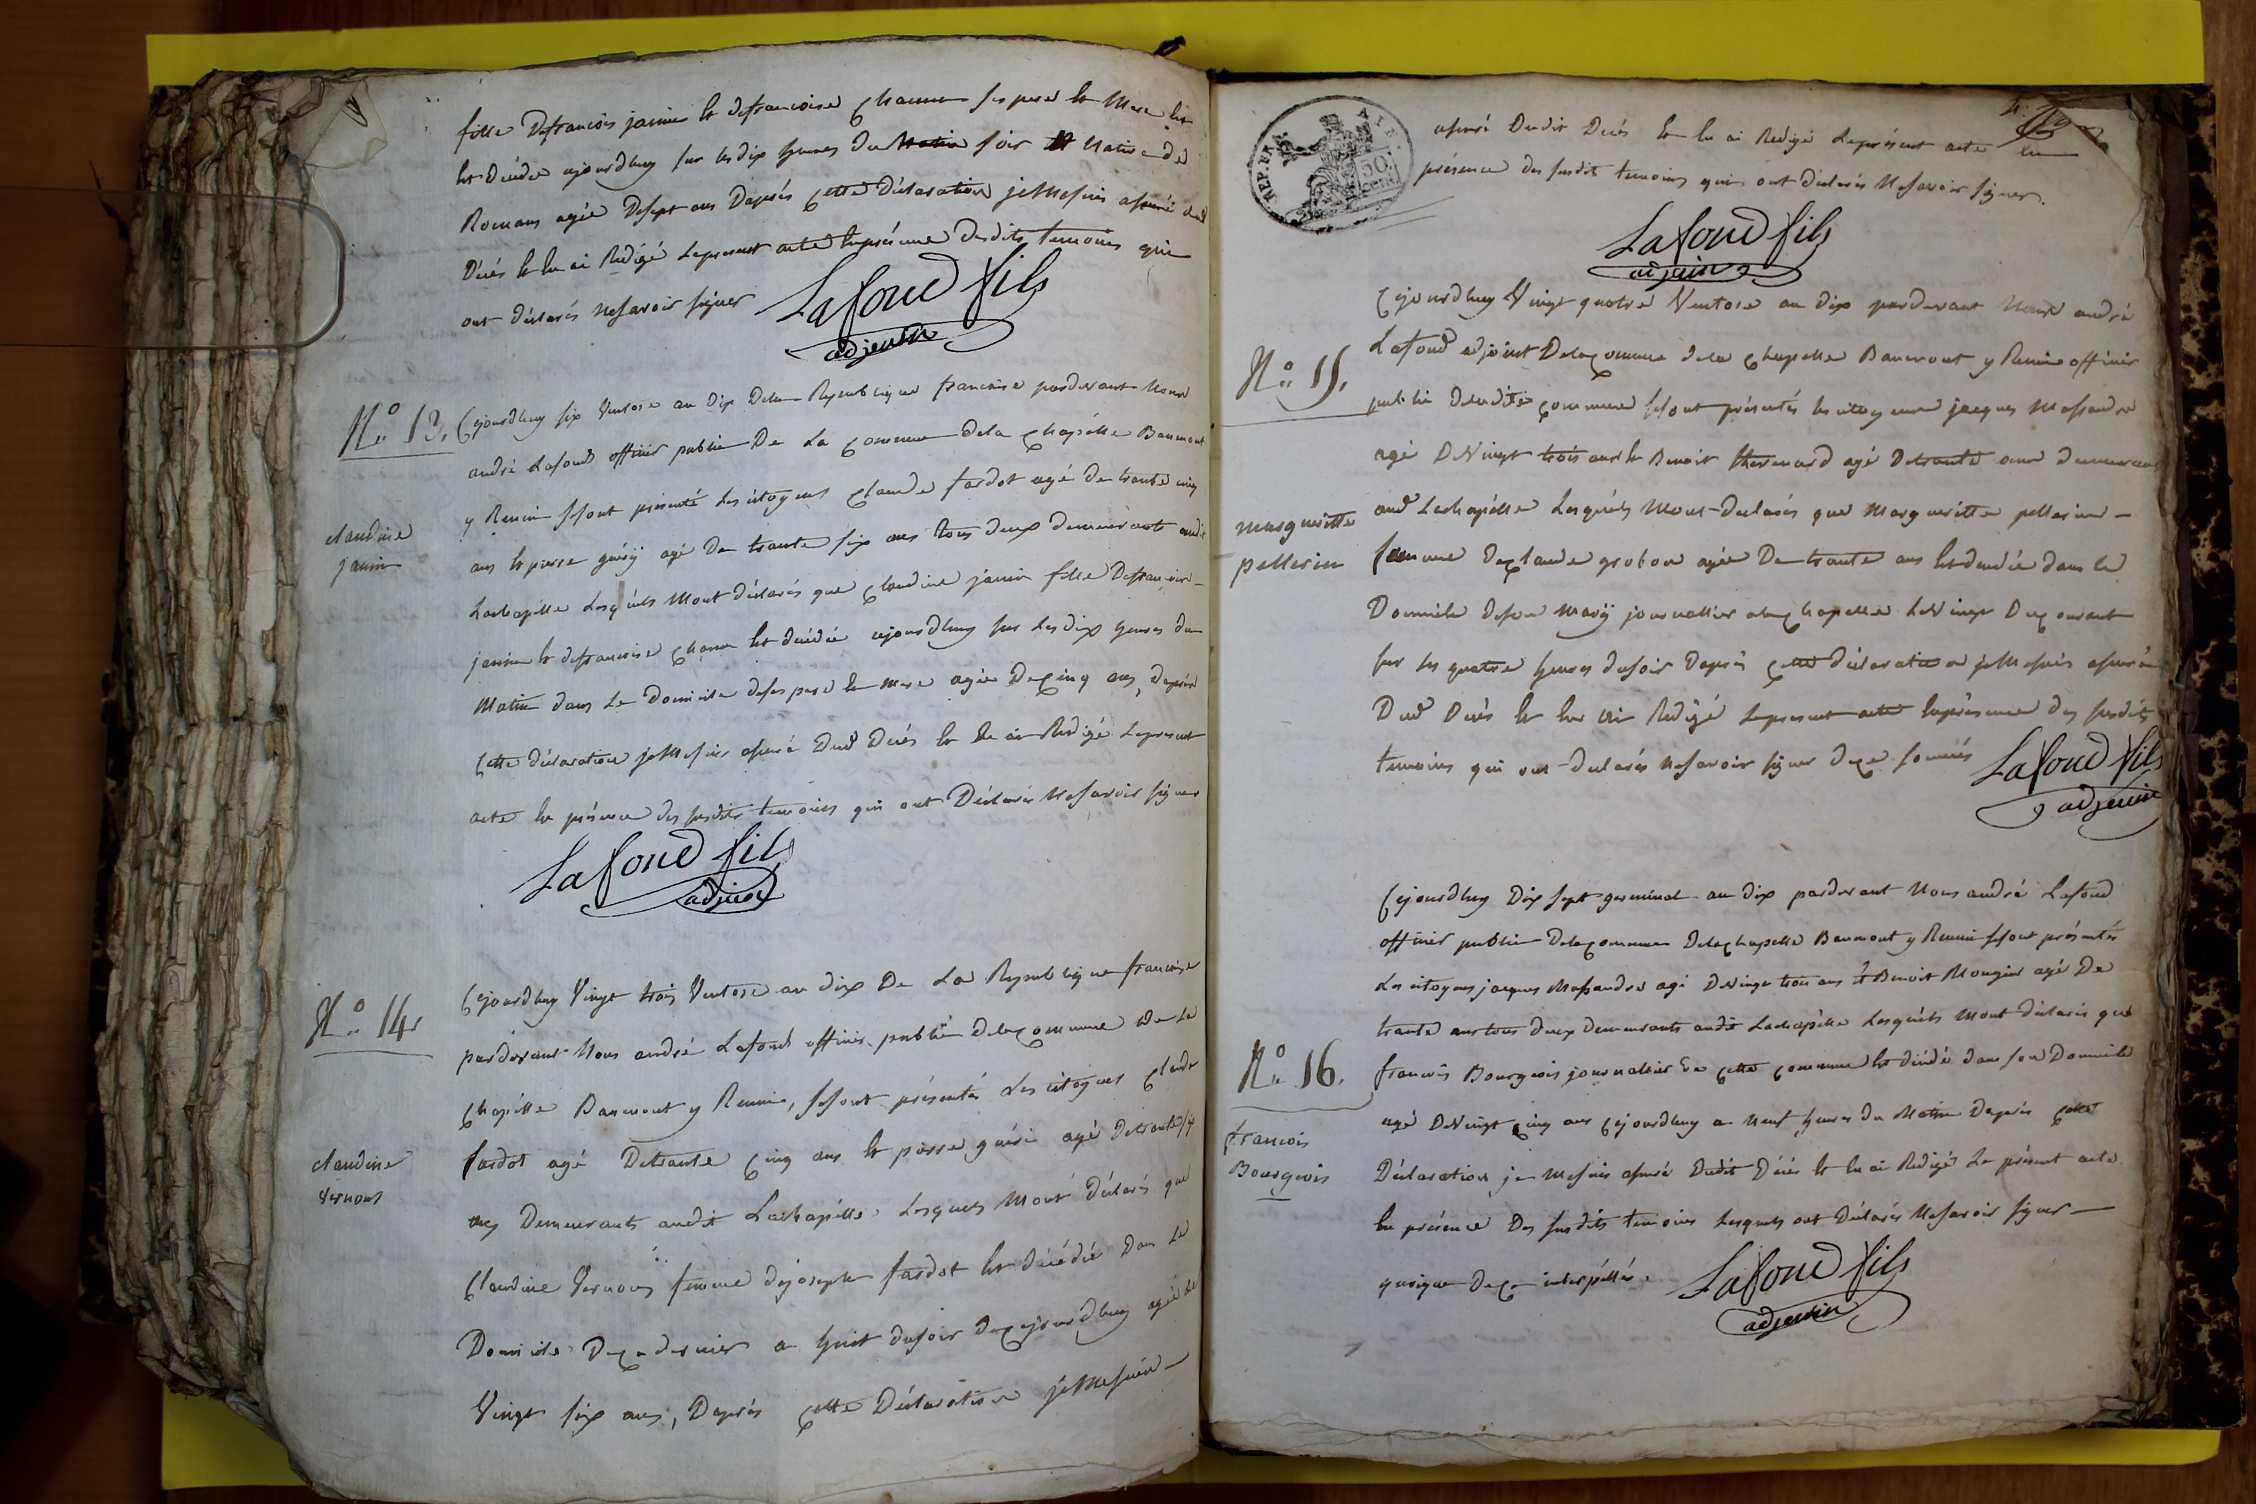 fille defrancois janin et defrancoise chanus ses pere et mere est
est décédée ajourdhuy sur les dix heures du matin soir et native de
Romans agée desept ans daprés cette déclaration jeMesuis assuré dud
décés et en ai Redigé lepresent acte enprésence desdits temoins qui
ont déclarés nesavoir signer Lafond fils
adjoint
N.o 13.
Cejourdhuy six Ventose an dix dela Republique francaise pardevant Nous
andré Lafond officier public De La Commune dela chapelle Baumont
y Reunie sesont présenté Les citoyens claude fardot agé de trante cinq
claudine
janin
ans et pierre guérij agé de trante six ans tous deux demeurants audit
Lachapelle Lesquéls Mont déclarés que claudine janin fille defrancois
janin et defrancoise est décédée ajourdhuy sur Les dix heures du
Matin dans Le Domicile deses pere et mere agée decinq ans, daprés
cette déclaration jeMesuis assuré dud décés et en ai Redigé Lepresent
acte en présence des susdits temoins qui ont Déclarés Nesavoir signer
Lafond fils
adjoint
N.o 14.
Cejourdhuy Vingt trois Ventose an dix De La Republique francaise
pardevant Nous andré Lafond officier public delacommune de La
chapélle Baumont y Reunie, sesont présentés Les citoyens claude
claudine
Vernous
fardot agé Detrante cinq ans et pierre guérin agé detrante six
ans Demeurants audit Lachapélle Lesquels Mont déclarés que
Claudine Vernous femme dejoseph fardot est décédée Dans Le
Domicile de ce dernier a huit dusoir decejourdhuy agée de
Vingt six ans, Daprés cette Déclaration jeMesuis
assuré Dudit Décés et en ai Redigé Leprésent acte en
présence des susdits temoins qui ont déclarés Nesavoir signer.
REP. FRA.
50 cent.
Lafond fils
adjoint
Cejourdhuy Vingt quatre Ventose an dix pardevant Nous andré
N.o 15.
Lafond adjoint Delacommune dela chapelle Baumont y Reunie officier
public deladite commune sesont présentés les citoyens jacques Massandre
agé DeVingt trois ans et Benoit thevenard agé Detrante ans demeurant
margueritte
pellerin
aud Lachapélle Lesquéls Mont déclarés que Margueritte pellerin
femme declaude grobon agée De trante ans est décédée dans le
Domicile deson Marij journallier alachapelle LeVingt Du courant
sur les quatre heures dusoir Daprés cette déclaration jeMesuis assuré
Dud Décés et en ai Redigé Lepresent acte enprésence des susdits
temoins qui ont déclarés Nesavoir signer dece sommés Lafond fils
adjoint
Cejourdhuy Dix sept germinal an dix pardevant Nous andré Lafond
officier public delacommune delachapelle Baumont y Reunie sesont présentés
Les citoyens jacques Massandre agé DeVingt trois ans et Benoit Mongin agé De
trante ans tous deux demeurants audit Lachapélle Lesquéls Mont déclarés que
N.o 16.
francois Bourgeois journallier de cette commune est décédé dans son Domicile
agé DeVingt cinq ans cejourdhuy a Neuf heures du Matin Daprés cette
francois
Bourgeois
Déclaration je Mesuis assuré Dudit Décés et en ai Redigé Le présent acte
En présence Des susdits temoins Lesquels ont Déclarés Nesavoir signer
quoique dece interpéllés. Lafond fils
adjoint